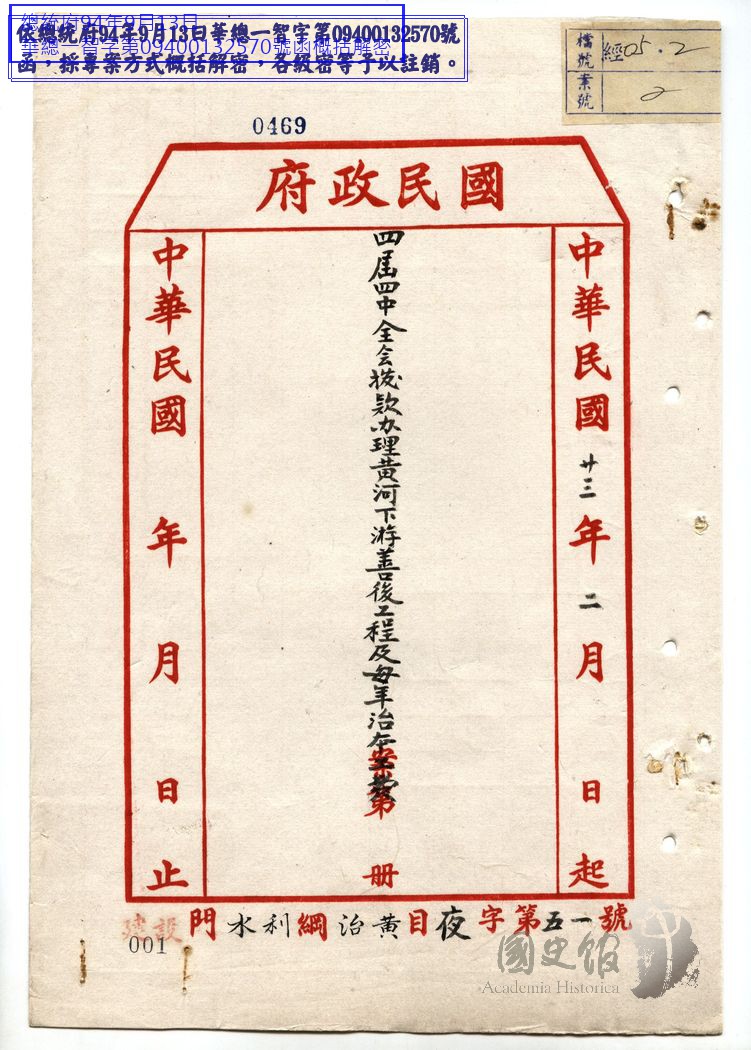 總統府94年9月13日
華總一智字第09400132570號函概括解密
依總統府94年9月13日華總一智字第09400132570號
函，採專案方式概括解密，各級密等予以註銷。
檔號 經05.2
案號 2
0469
國民政府
中華民國廿三年二月日起
四届四中全会拨欵办理黄河下游善後工程及每年治本工費案第册
中華民國年月日止
建設門水利綱治黄目夜字第五一號
001
國史館
Academia Historica